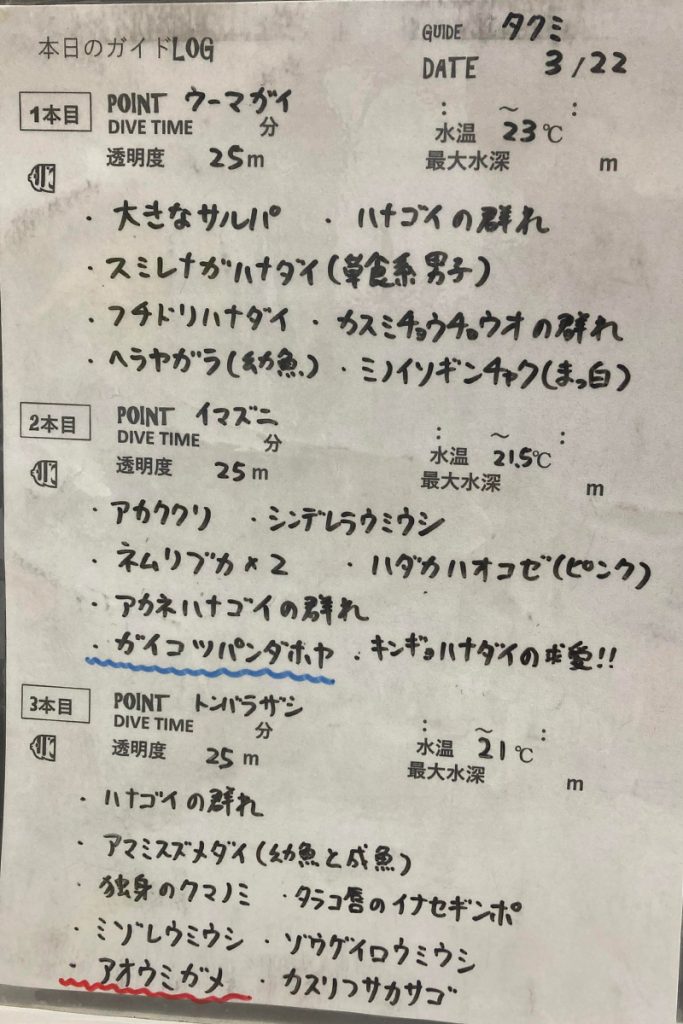 本日のガイドLOG GUIDE タクミ
DATE 3/22
1本目 POINT ウーマガイ
DIVE TIME 分 : ～ :
水温 23℃
透明度 25m 最大水深 m
・大きなサルパ ・ハナゴイの群れ
・スミレナガハナダイ(草食系男子)
・フチドリハナダイ ・カスミチョウチョウオの群れ
・ヘラヤガラ(幼魚) ・ミノイソギンチャク(まっ白)
2本目 POINT イマズニ
DIVE TIME 分 : ～ :
透明度 25m 水温 21.5℃
最大水深 m
・アカククリ ・シンデレラウミウシ
・ネムリブカ×2 ・ハダカハオコゼ(ピンク)
・アカネハナゴイの群れ
・ガイコツパンダホヤ ・キンギョハナダイの求愛!!
3本目 POINT トンバラザシ
DIVE TIME 分 : ～ :
透明度 25m 水温 21℃
最大水深 m
・ハナゴイの群れ
・アマミスズメダイ(幼魚と成魚)
・独身のクマノミ ・タラコ唇のイナセギンポ
・ミゾレウミウシ ・ゾウゲイロウミウシ
・アオウミガメ ・カスリフサカサゴ